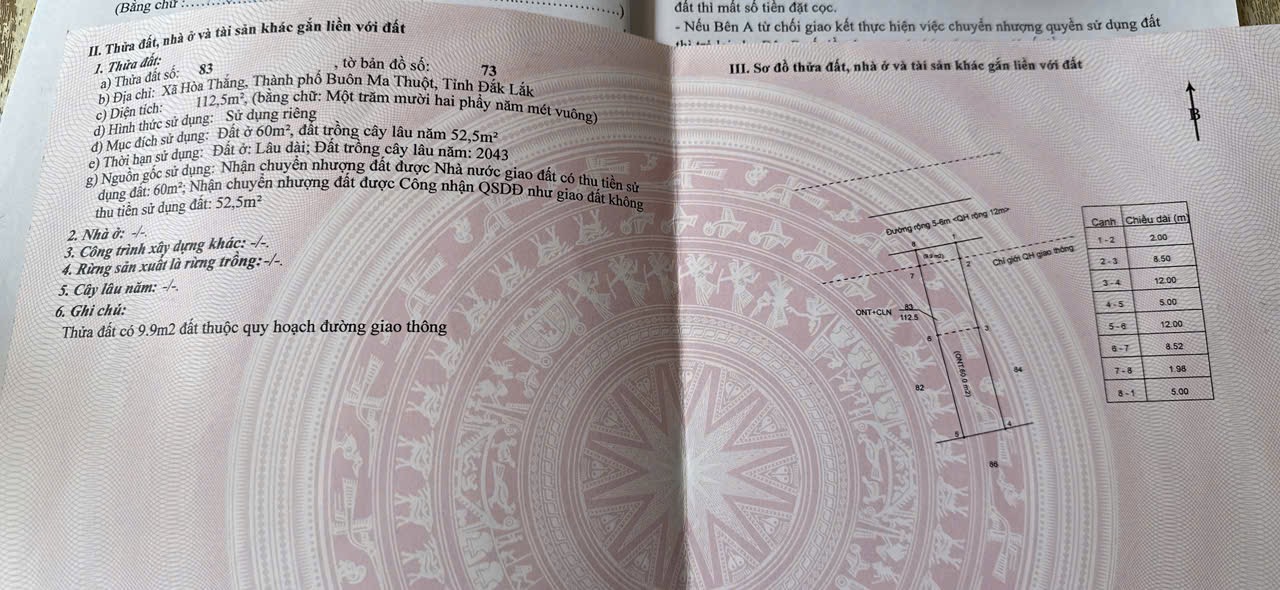 (Bằng chữ :
đất thì mất số tiền đặt cọc.
- Nếu Bên A từ chối giao kết thực hiện việc chuyển nhượng quyền sử dụng đất
II. Thửa đất, nhà ở và tài sản khác gắn liền với đất
1. Thửa đất:
a) Thửa đất số: 83 , tờ bản đồ số: 73
b) Địa chỉ: Xã Hòa Thắng, Thành phố Buôn Ma Thuột, Tỉnh Đắk Lắk
c) Diện tích: 112,5m², (bằng chữ: Một trăm mười hai phẩy năm mét vuông)
d) Hình thức sử dụng: Sử dụng riêng
đ) Mục đích sử dụng: Đất ở 60m², đất trồng cây lâu năm 52,5m²
e) Thời hạn sử dụng: Đất ở: Lâu dài; Đất trồng cây lâu năm: 2043
g) Nguồn gốc sử dụng: Nhận chuyển nhượng đất được Nhà nước giao đất có thu tiền sử
dụng đất: 60m²; Nhận chuyển nhượng đất được Công nhận QSDĐ như giao đất không
thu tiền sử dụng đất: 52,5m²
2. Nhà ở: -/-.
3. Công trình xây dựng khác: -/-.
4. Rừng sản xuất là rừng trồng: -/-.
5. Cây lâu năm: -/-.
6. Ghi chú:
Thửa đất có 9.9m2 đất thuộc quy hoạch đường giao thông
III. Sơ đồ thửa đất, nhà ở và tài sản khác gắn liền với đất
B
Đường rộng 5-6m <QH rộng 12m>
8 1
(9.9 m2)
Chỉ giới QH giao thông
7 2
ONT+CLN 83
112.5
6 3
(ONT:60.0 m2)
82 84
5 4
86
Cạnh Chiều dài (m)
1 - 2 2.00
2 - 3 8.50
3 - 4 12.00
4 - 5 5.00
5 - 6 12.00
6 - 7 8.52
7 - 8 1.98
8 - 1 5.00